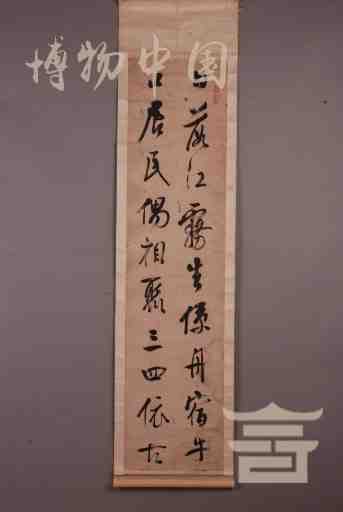 博物中国
日落江霧生係舟宿牛
口居民偶相聚三四依古